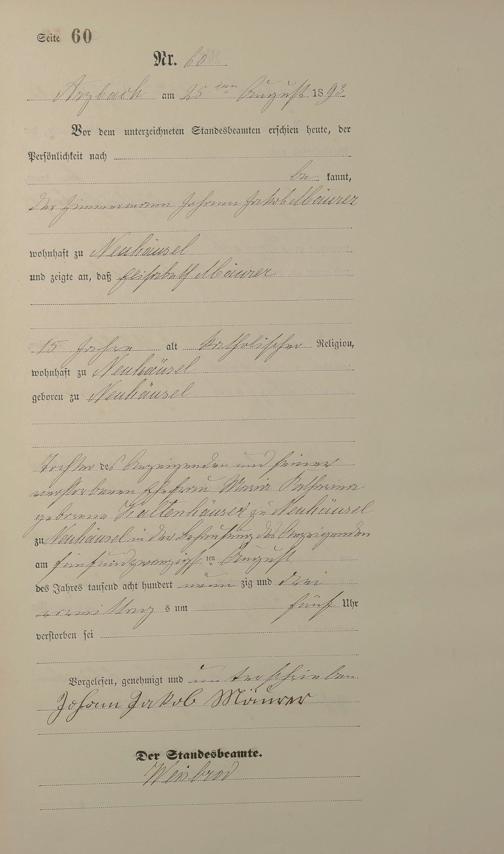 Seite 60
Nr. 60
Arzbach am 25 ten August 1893
Vor dem unterzeichneten Standesbeamten erschien heute, der
Persönlichkeit nach
be kannt,
der Zimmermann Johann Jakob Mäurer
wohnhaft zu Neuhäusel
und zeigte an, daß Elisabeth Mäurer
15 Jahre alt katholischer Religion,
wohnhaft zu Neuhäusel
geboren zu Neuhäusel
Tochter des Anzeigenden und seiner
verstorbenen Ehefrau Maria Katharina
geborene Kaltenhäuser zu Neuhäusel
zu Neuhäusel in der Behausung des Anzeigenden
am fünfundzwanzigsten August
des Jahres tausend acht hundert neun zig und drei
vormittag s um fünf Uhr
verstorben sei
Vorgelesen, genehmigt und unterschrieben
Johann Jakob Mäurer
Der Standesbeamte.
Weinbrod